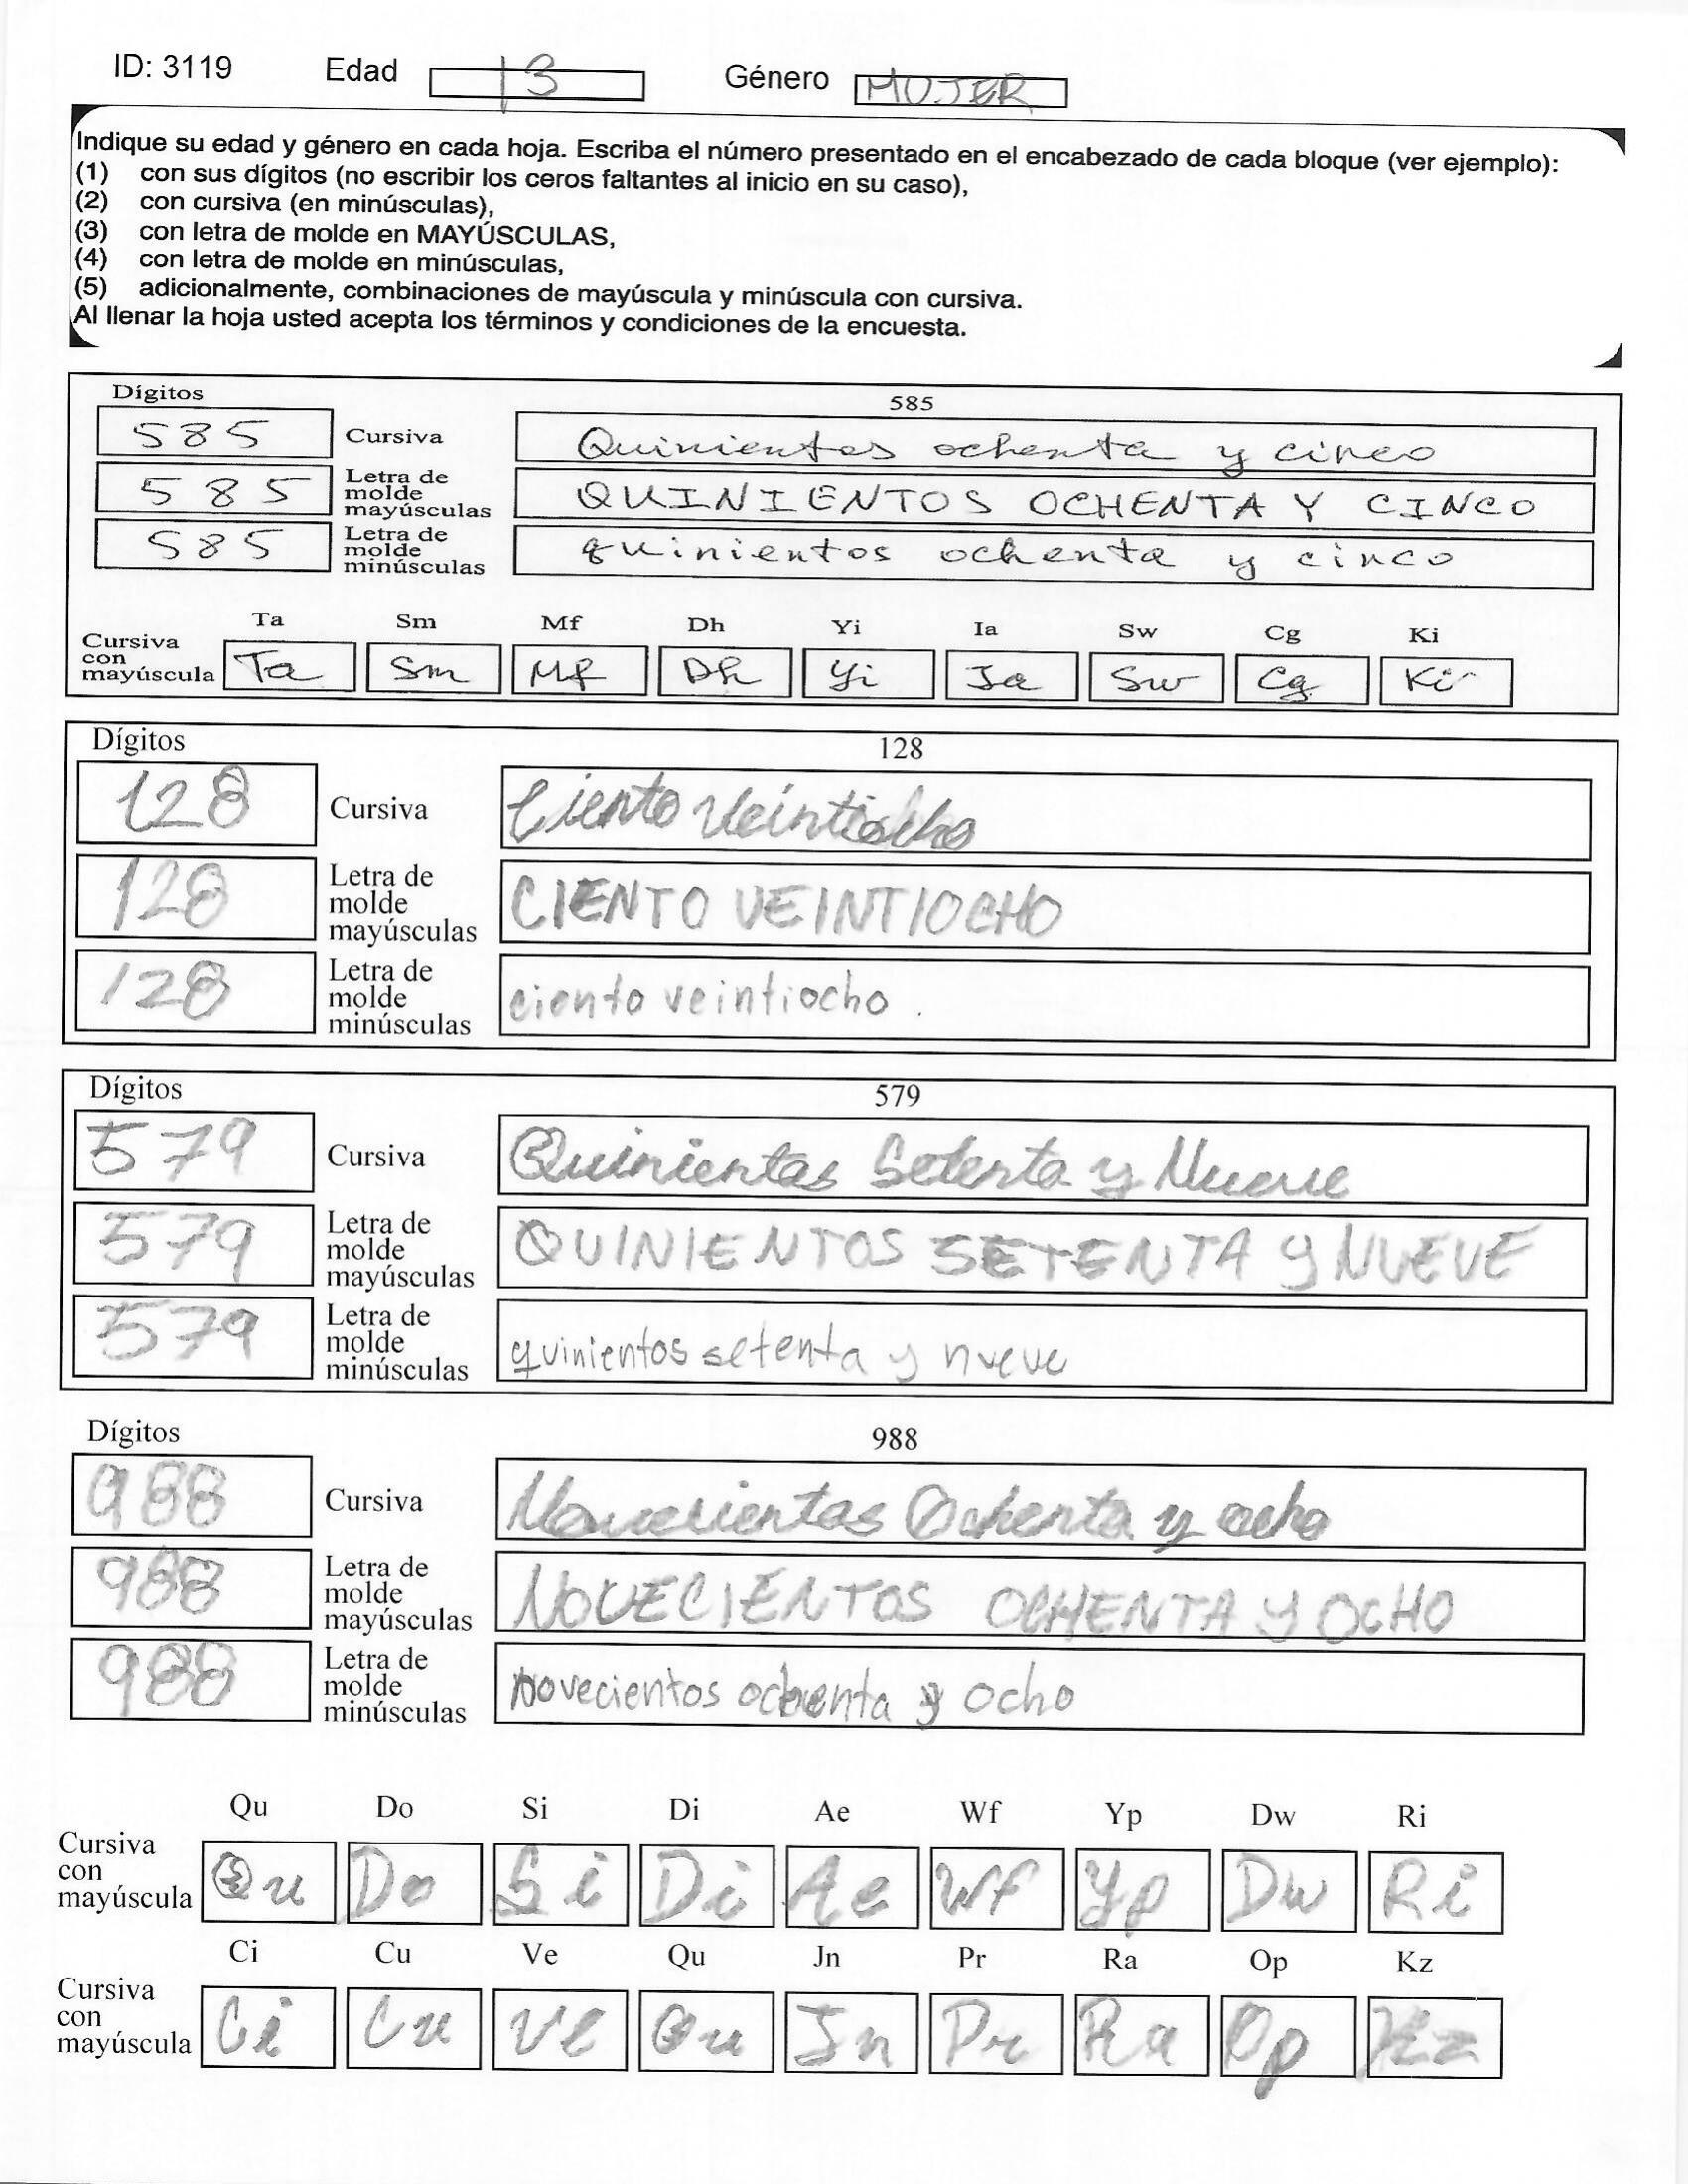 ID: 3119 Edad 13 Género MUJER
Indique su edad y género en cada hoja. Escriba el número presentado en el encabezado de cada bloque (ver ejemplo):
(1) con sus dígitos (no escribir los ceros faltantes al inicio en su caso),
(2) con cursiva (en minúsculas),
(3) con letra de molde en MAYÚSCULAS,
(4) con letra de molde en minúsculas,
(5) adicionalmente, combinaciones de mayúscula y minúscula con cursiva.
Al llenar la hoja usted acepta los términos y condiciones de la encuesta.
Dígitos 585
585 Cursiva Quinientos ochenta y cinco
585 Letra de molde mayúsculas QUINIENTOS OCHENTA Y CINCO
585 Letra de molde minúsculas quinientos ochenta y cinco
Ta Sm Mf Dh Yi Ia Sw Cg Ki
Cursiva con mayúscula Ta Sm Mf Dh Yi Ia Sw Cg Ki
Dígitos 128
128 Cursiva Ciento Veintiocho
128 Letra de molde mayúsculas CIENTO VEINTIOCHO
128 Letra de molde minúsculas ciento veintiocho.
Dígitos 579
579 Cursiva Quinientos Setenta y Nueve
579 Letra de molde mayúsculas QUINIENTOS SETENTA y NUEVE
579 Letra de molde minúsculas quinientos setenta y nueve
Dígitos 988
988 Cursiva Novecientos Ochenta y ocho
988 Letra de molde mayúsculas NOVECIENTOS OCHENTA y OCHO
988 Letra de molde minúsculas novecientos ochenta y ocho
Qu Do Si Di Ae Wf Yp Dw Ri
Cursiva con mayúscula Qu Do Si Di Ae Wf Yp Dw Ri
Ci Cu Ve Qu Jn Pr Ra Op Kz
Cursiva con mayúscula Ci Cu Ve Qu Jn Pr Ra Op Kz